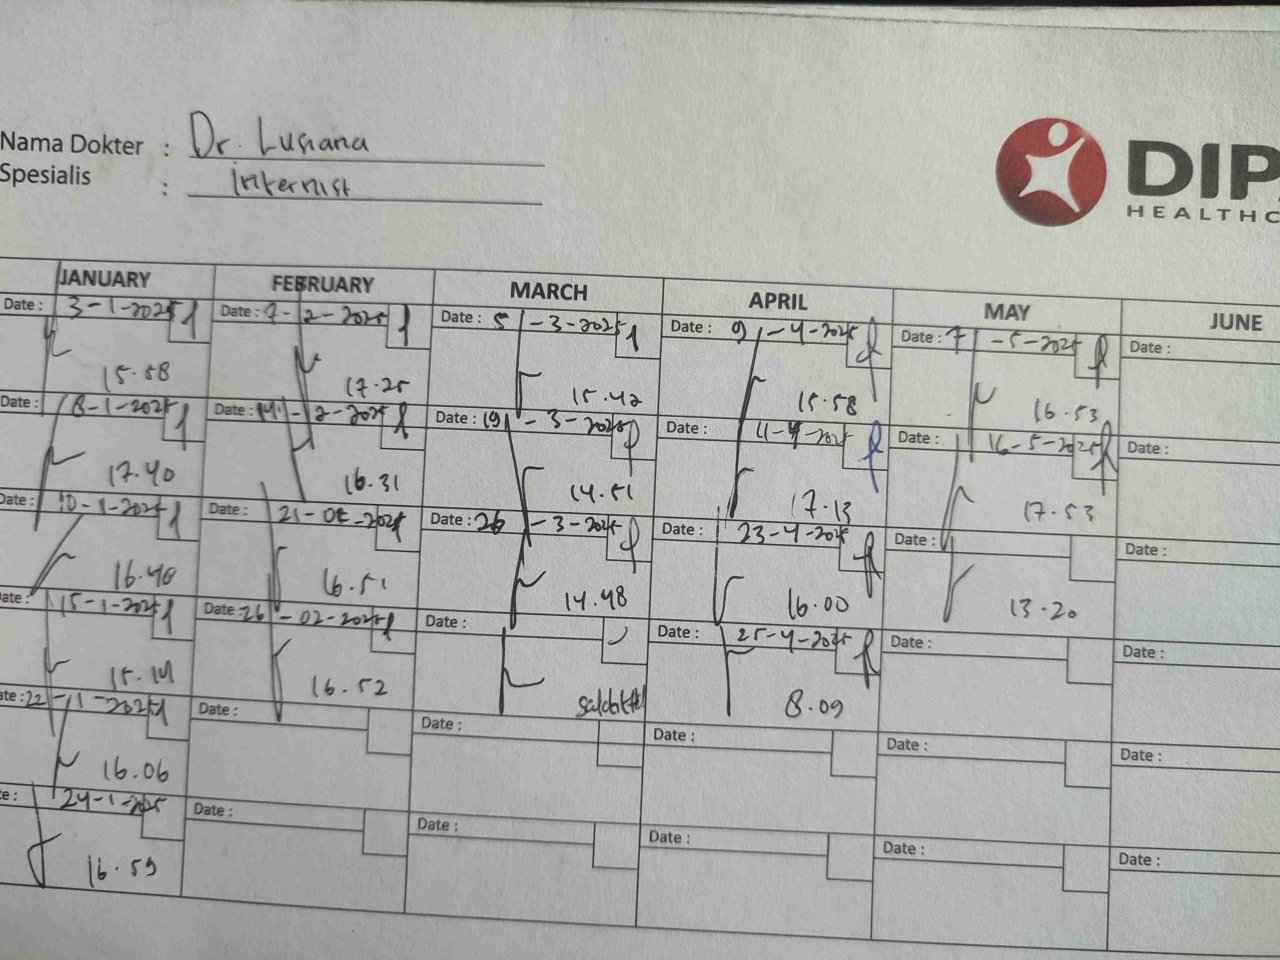 Nama Dokter : Dr. Lusiana
Spesialis : Internist
DIP
HEALTHC
JANUARY FEBRUARY MARCH APRIL MAY JUNE
Date : 3-1-2025 Date : 7-2-2025 Date : 5-3-2025 Date : 9-4-2025 Date : 7-5-2025 Date :
15.58 17.25 15.42 15.58 16.53
Date : 8-1-2025 Date : 14-2-2025 Date : 19-3-2025 Date : 11-4-2025 Date : 16-5-2025 Date :
17.40 16.31 14.51 17.13 17.53
Date : 10-1-2025 Date : 21-02-2025 Date : 26-3-2025 Date : 23-4-2025 Date : Date :
16.40 16.51 14.48 16.00 13.20
ate : 15-1-2025 Date : 26-02-2025 Date : Date : 25-4-2025 Date : Date :
15.14 16.52 8.09
ate : 22-1-2025 Date : Date : Date : Date : Date :
16.06
e : 24-1-2025 Date : Date : Date : Date : Date :
16.59